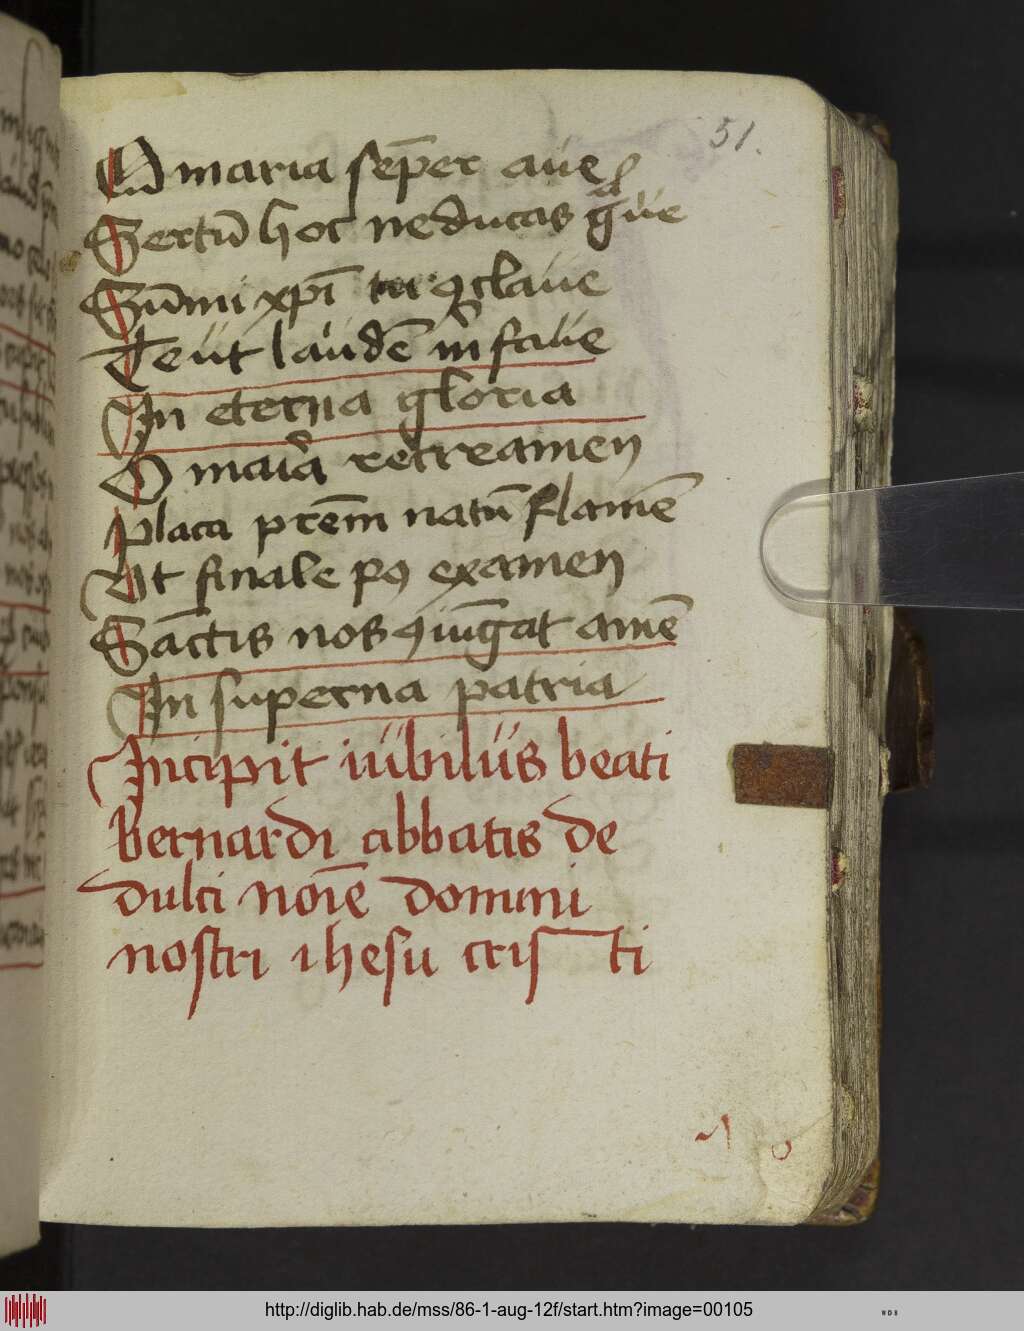 51.
O maria sēper aue
Sertū hoc ne ducas gͣue
Sūmi xp̄i tu ꝯclaue
Te ut laudē in suaue
In eterna gloria
O maria recreamen
placa prēm natū flamē
Ut finale pꝰ examen
Sāctis nos ꝯiūgat amē
In superna patria
Incipit iubilus beati
bernardi abbatis de
dulci noīe domini
nostri ihesu cristi
http://diglib.hab.de/mss/86-1-aug-12f/start.htm?image=00105